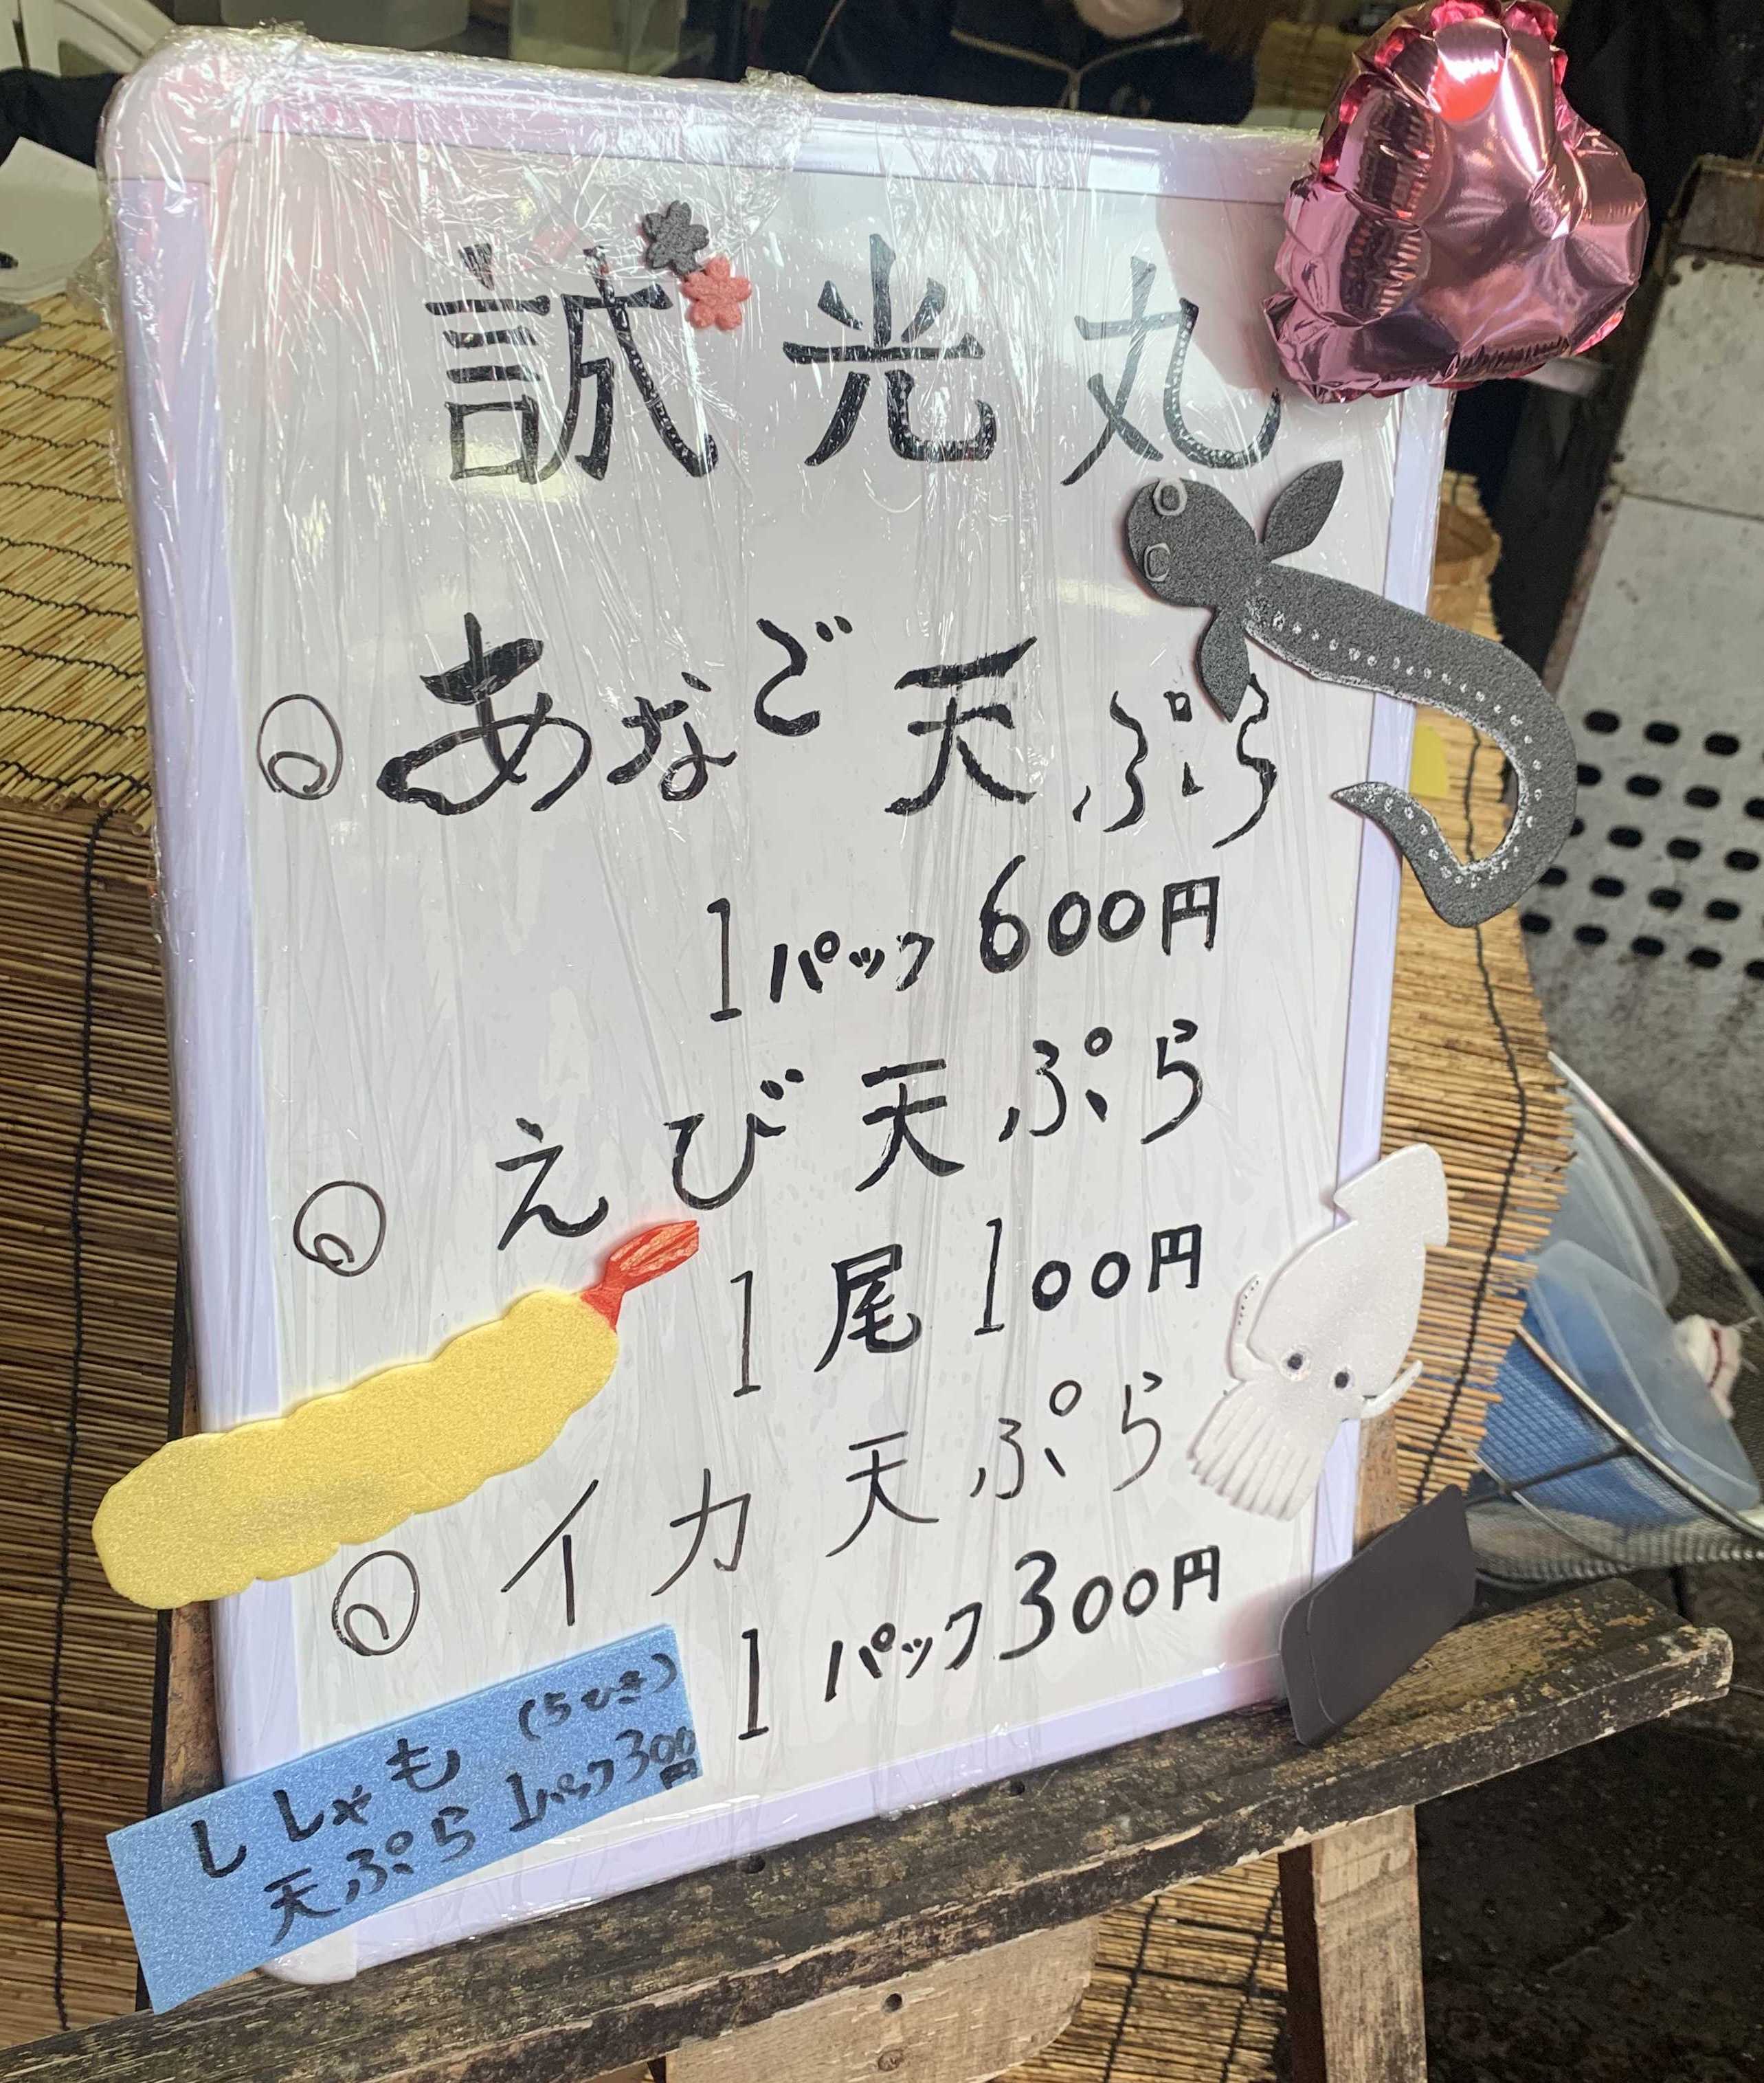 誠光丸
あなご天ぷら
1パック600円
えび天ぷら
1尾100円
イカ天ぷら
1パック300円
ししゃも(5ひき)
天ぷら1パック300円